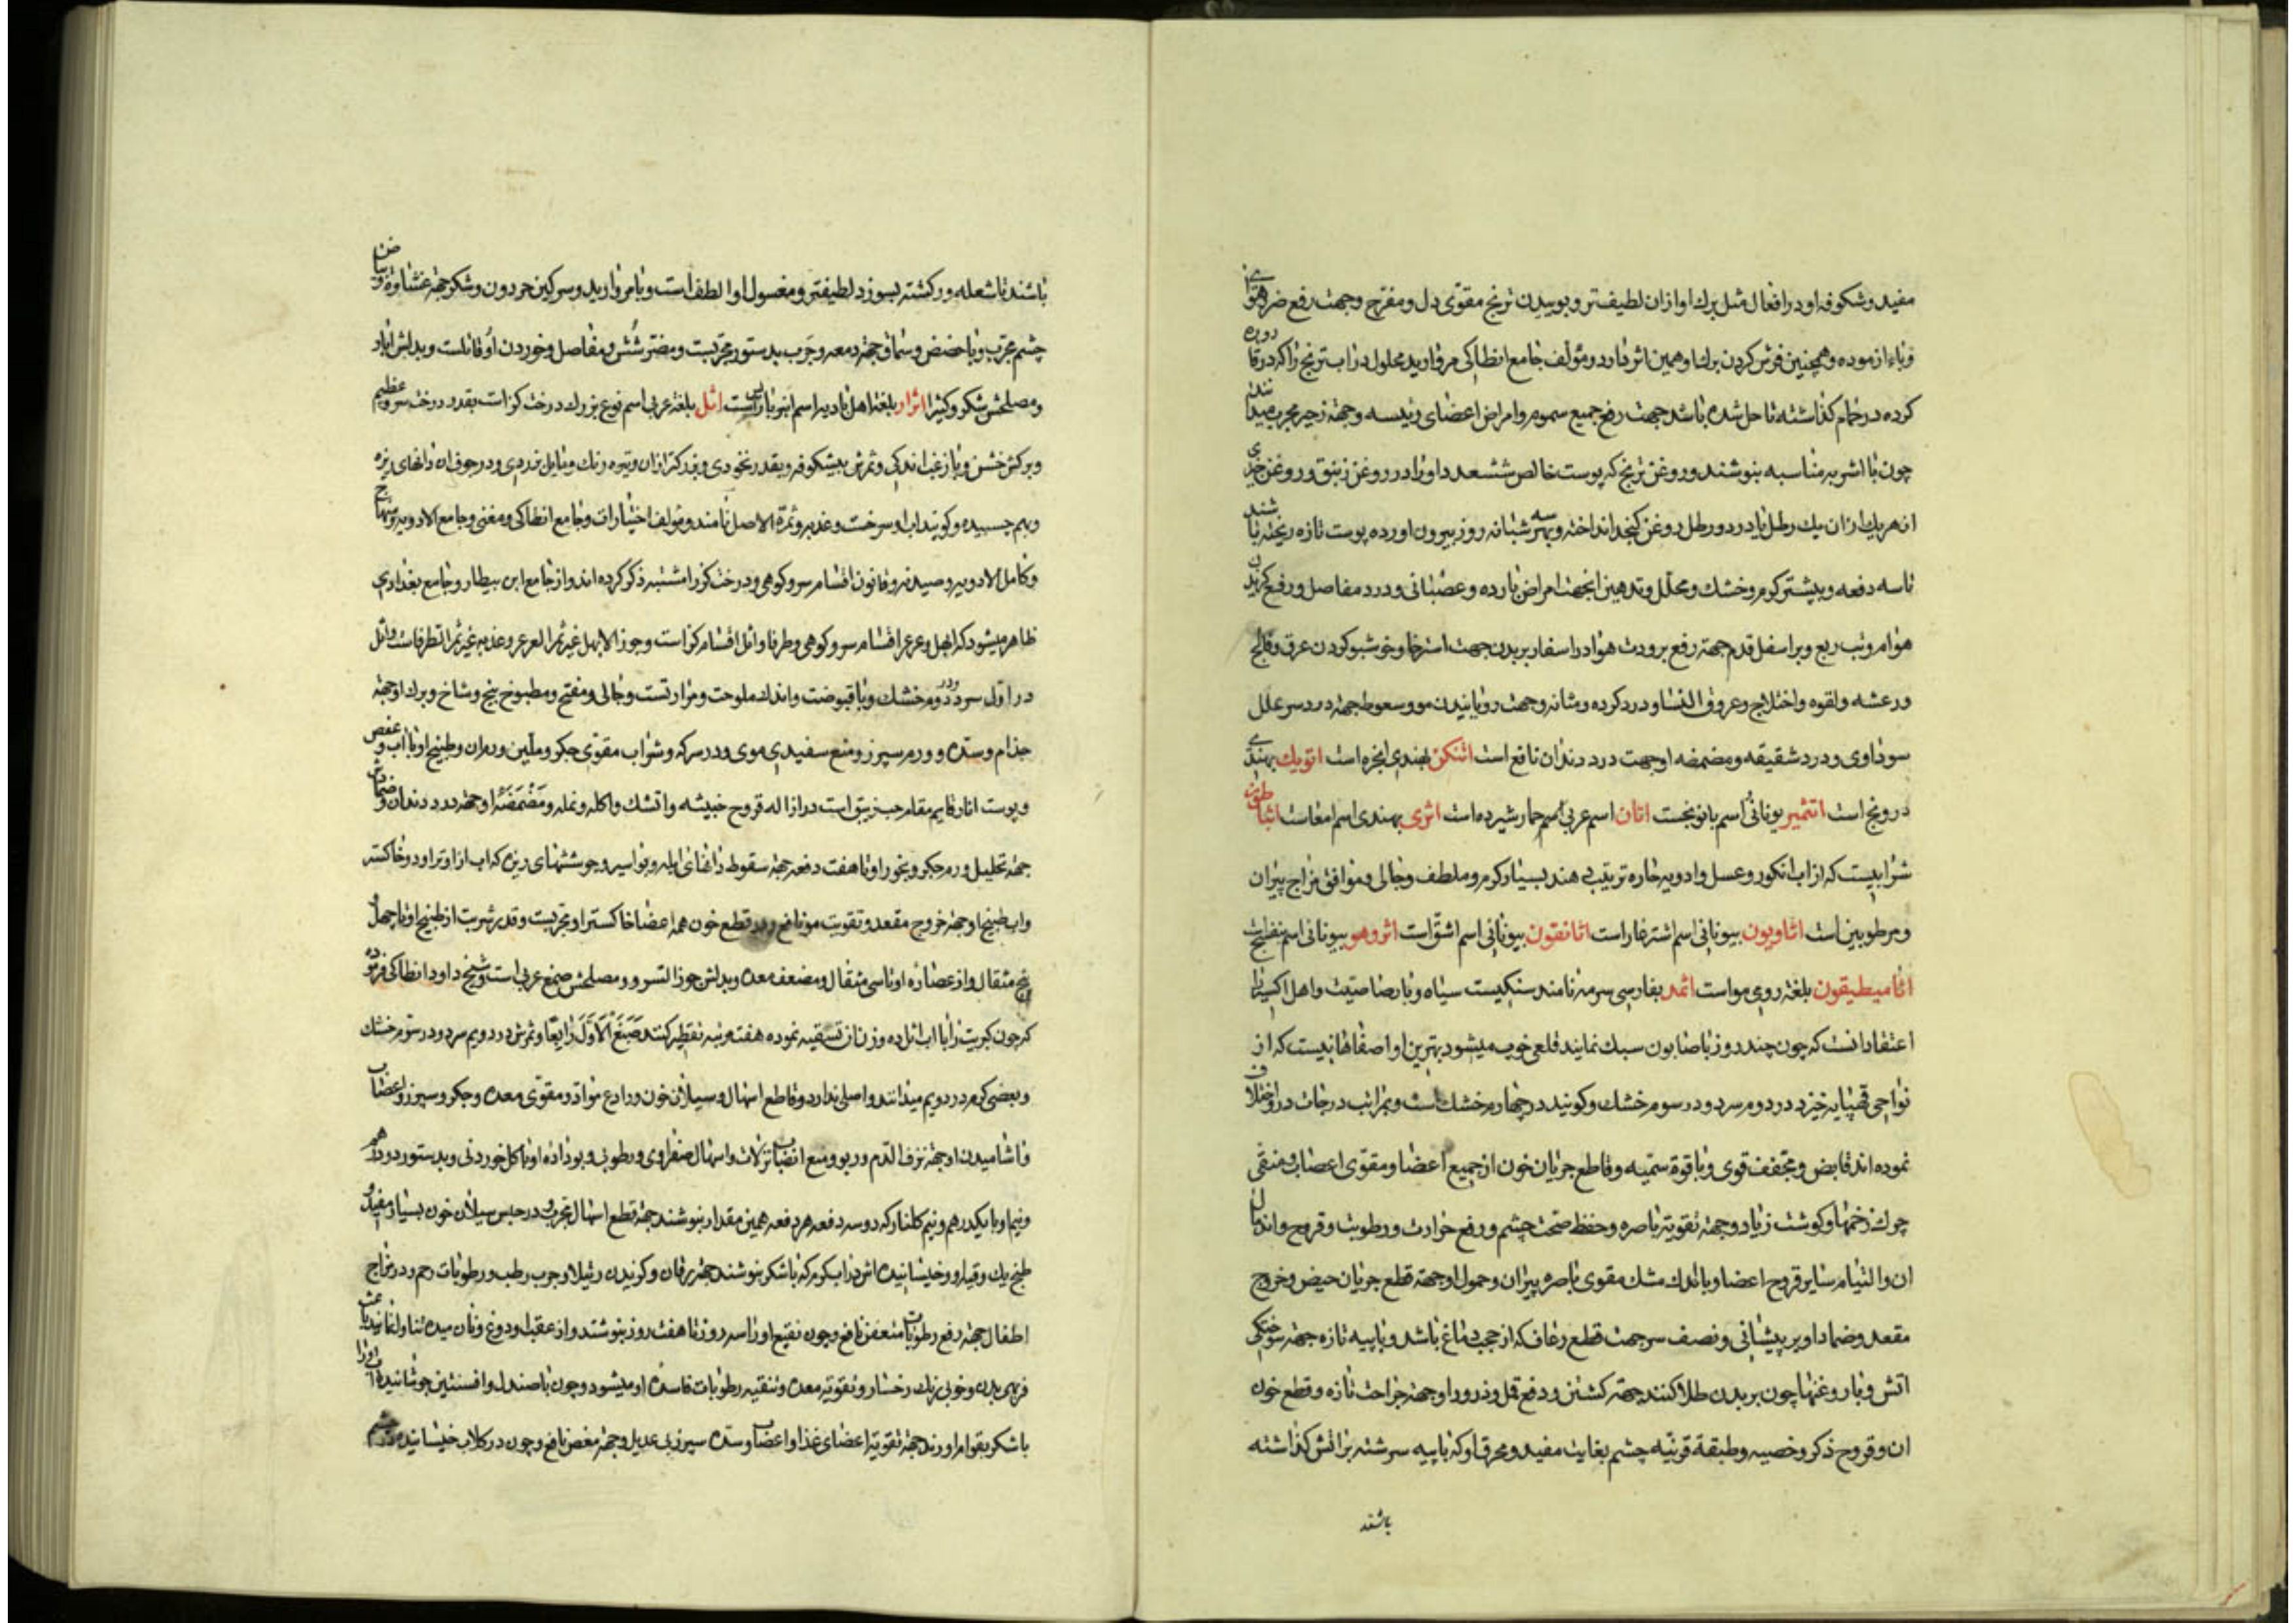 مفید و شکوفه او در افعال مثل برك او و ازان لطیف‌تر و بوییدن ترنج مقوی دل و مفرح و جهت رفع ضرر هوای
وباء ازموده و همچنین فرش کردن برك او همین اثر دارد و مؤلف جامع انطاکی مروارید محلول در اب ترنج را که در قاروره
کرده در خمام کذاشته تا حل شده باشد جهت رفع جمیع سموم و امراض اعضای رئیسه و جهة زحیر مجرب میدانند
چون با اشربه مناسبه بنوشند و روغن ترنج که پوست خالص ششعدد او را در روغن زنبق و روغن خیری
از هریك ازان یك رطل یا در دو رطل روغن کنجد انداخته و بهر سه شبانه روز بیرون اورده پوست تازه ریخته باشند
تا سه دفعه و بیشتر کرم و خشك و محلل و تدهین انجهت امراض بارده و عصبانی و درد مفاصل و رفع کزیدن
هوام و تب ربع و بر اسفل قدم جهة رفع برودت هوا در اسفار بر بدن جهت استرخا و خوشبو کردن عرق و فالج
و رعشه و لقوه و اختلاج و عروق النسا و درد کرده و مثانه و جهت رویانیدن مو و سعوط جهة درد سر علل
سوداوی و درد شقیقه و مضمضه او جهت درد دندان نافع است اتنکن بهندی انجره است اتویك بهندی
درونج است اتتمیر یونانی اسم بابونجست اتان اسم عربی اسم حمار شیرده است اثری بهندی اسم امعاست
شرابیست که از اب انکور و عسل و ادویه حاره ترتیب دهند بسیار کرم و ملطف و جالی و موافق مزاج پیران
و مرطوبین است اثاویون بیونانی اسم اشترغار است اثانقون بیونانی اسم اشق است اثروهو بیونانی اسم بنفسج است
اثامیطیقون بلغة رومی مو است اثمد بفارسی سرمه نامند سنکیست سیاه و با رصاصیت و اهل اکسیر را
اعتقاد انست که چون چند روز با صابون سبك نمایند قلعی خوب میشود بهترین او اصفاهانیست که از
نواحی قهپایه خیزد در دوم سرد و در سوم خشك و کویند در چهارم خشك است و بمراتب درجات در او اختلاف
نموده‌اند قابض و مجفف قوی و با قوة سمیه و قاطع جریان خون از جمیع اعضا و مقوی اعصاب و منقی
چرك زخمها و کوشت زیاد و جهة تقویة باصره و حفظ صحت چشم و رفع حرارت و رطوبت و قروح و اندمال
ان و التیام سایر قروح اعضا و با اندك مشك مقوی باصره پیران و حمول او جهة قطع جریان حیض و خروج
مقعد و ضماد او بر پیشانی و نصف سر جهت قطع رعاف که از حجب دماغ باشد و با پیه تازه جهة سوختکی
اتش و با روغنها چون بر بدن طلا کنند جهة کشتن و دفع قمل و ذرور او جهة جراحت تازه و قطع خون
ان و قروح ذکر و خصیه و طبقة قرنیه چشم بغایت مفید و محرق او که با پیه سرشته بر اتش کذاشته
باشند
باشند تا شعله‌ور کشته بسوزد لطیفتر و مغسول او الطف است و با مروارید و سرکین حردون و شکر جهة غشاوة و بیاض
چشم مجرب و با حضض و سماق جهة دمعه و جرب بدستور مجربست و مضر شش و مفاصل و خوردن او قاتلست و بدلش ابار
و مصلحش شکر و کتیرا اثرار بلغة اهل بادیه اسم انبرباریس است اثل بلغة عربی اسم نوع بزرك درخت کز است بقدر درخت سرو عظیم
و برکش خشن و با زغب اندکی و ثمرش بیشکوفه و بقدر نخودی و بزرکتر ازان و تیره رنك و مایل بزردی و در جوف ان دانهای ریزه
و بهم چسبیده و کویند اب او سرخست و عذبه و ثمرة الاصل نامند و مؤلف اختیارات و جامع انطاکی و مغنی و جامع الادویه و منهاج
و کامل الادویه و صیدنه و قانون اقسام سرو کوهی و درخت کز را مشتبه ذکر کرده‌اند و از جامع ابن بیطار و جامع بغدادی
ظاهر میشود که ابهل و عرعر اقسام سرو کوهی و طرفا و اثل اقسام کز است و جوز الابهل غیر ثمر العرعر و عذبه غیر ثمر الطرفاست و اثل
در اول سرد و در دوم خشك و با قبوضت و اندك ملوحت و مرارتست و جالی و مفتح و مطبوخ بیخ و شاخ و برك او جهة
جذام و سده و ورم سپرز و منع سفیدی موی و در سرکه و شراب مقوی جکر و ملین ورم ان و طبیخ او با اب و عفص
و پوست انار قایم مقام حب زیبق است در ازاله قروح خبیثه و اتشك و اکله و نمله و مضمضه او جهة درد دندان و ضمادش
جهة تحلیل ورم جکر و بخور او تا هفت دفعه جهة سقوط دانهای ابله و بواسیر و جوششهای ریزه که اب از او تراود و خاکستر
و اب طبیخ او جهة خروج مقعد و تقویت مو نافع و در قطع خون همه اعضا خاکستر او مجربست و قدر شربت از طبیخ او تا چهل و
پنج مثقال و از عصاره او تا سی مثقال و مضعف معده و بدلش جوز السرو و مصلحش صمغ عربی است و شیخ داود انطاکی فرموده
که چون کبریت را با اب اثل ده وزن ان تسقیه نموده هفت مرتبه تقطیر کنند صبغ الاول رابعا و ثمرش در دویم سرد و در سوم خشك
و بعضی کرم در دویم میدانند و اصلی ندارد و قاطع اسهال و سیلان خون و رادع مواد و مقوی معده و جکر و سپرز و اعصاب
و اشامیدن او جهة نزف الدم و ربو و منع انصباب نزلات و اسهال صفراوی و رطوبی و بو داده او با کل خوردنی و بدستور دو درهم
و نیم او با یکدرهم و نیم کلنار که دو سه دفعه هر دفعه همین مقدار بنوشند جهة قطع اسهال مجرب و در حبس سیلان خون بسیار مفید و
طبخ یك وقیه او و خیسانیده اش در اب کرم که با شکر بنوشند جهة یرقان و کزیدن رتیلا و جرب رطب و رطوبات رحم و در مزاج
اطفال جهة رفع رطوبات متعفن نافع و چون نقیع او را سه روز تا هفت روز بنوشند و از عقب او دوغ و نان میده تناول نمایند باعث
فربهی بدن و خوبی رنك رخسار و تقویة معده و تنقیه رطوبات فاسده او میشود و چون با صندل و افسنتین جوشانیده اب او را
با شکر بقوام اورند جهة تقویة اعضای غذا و اعصاب و سده سپرز بی عدیل و جهة مغص نافع و چون در کلاب خیسانیده